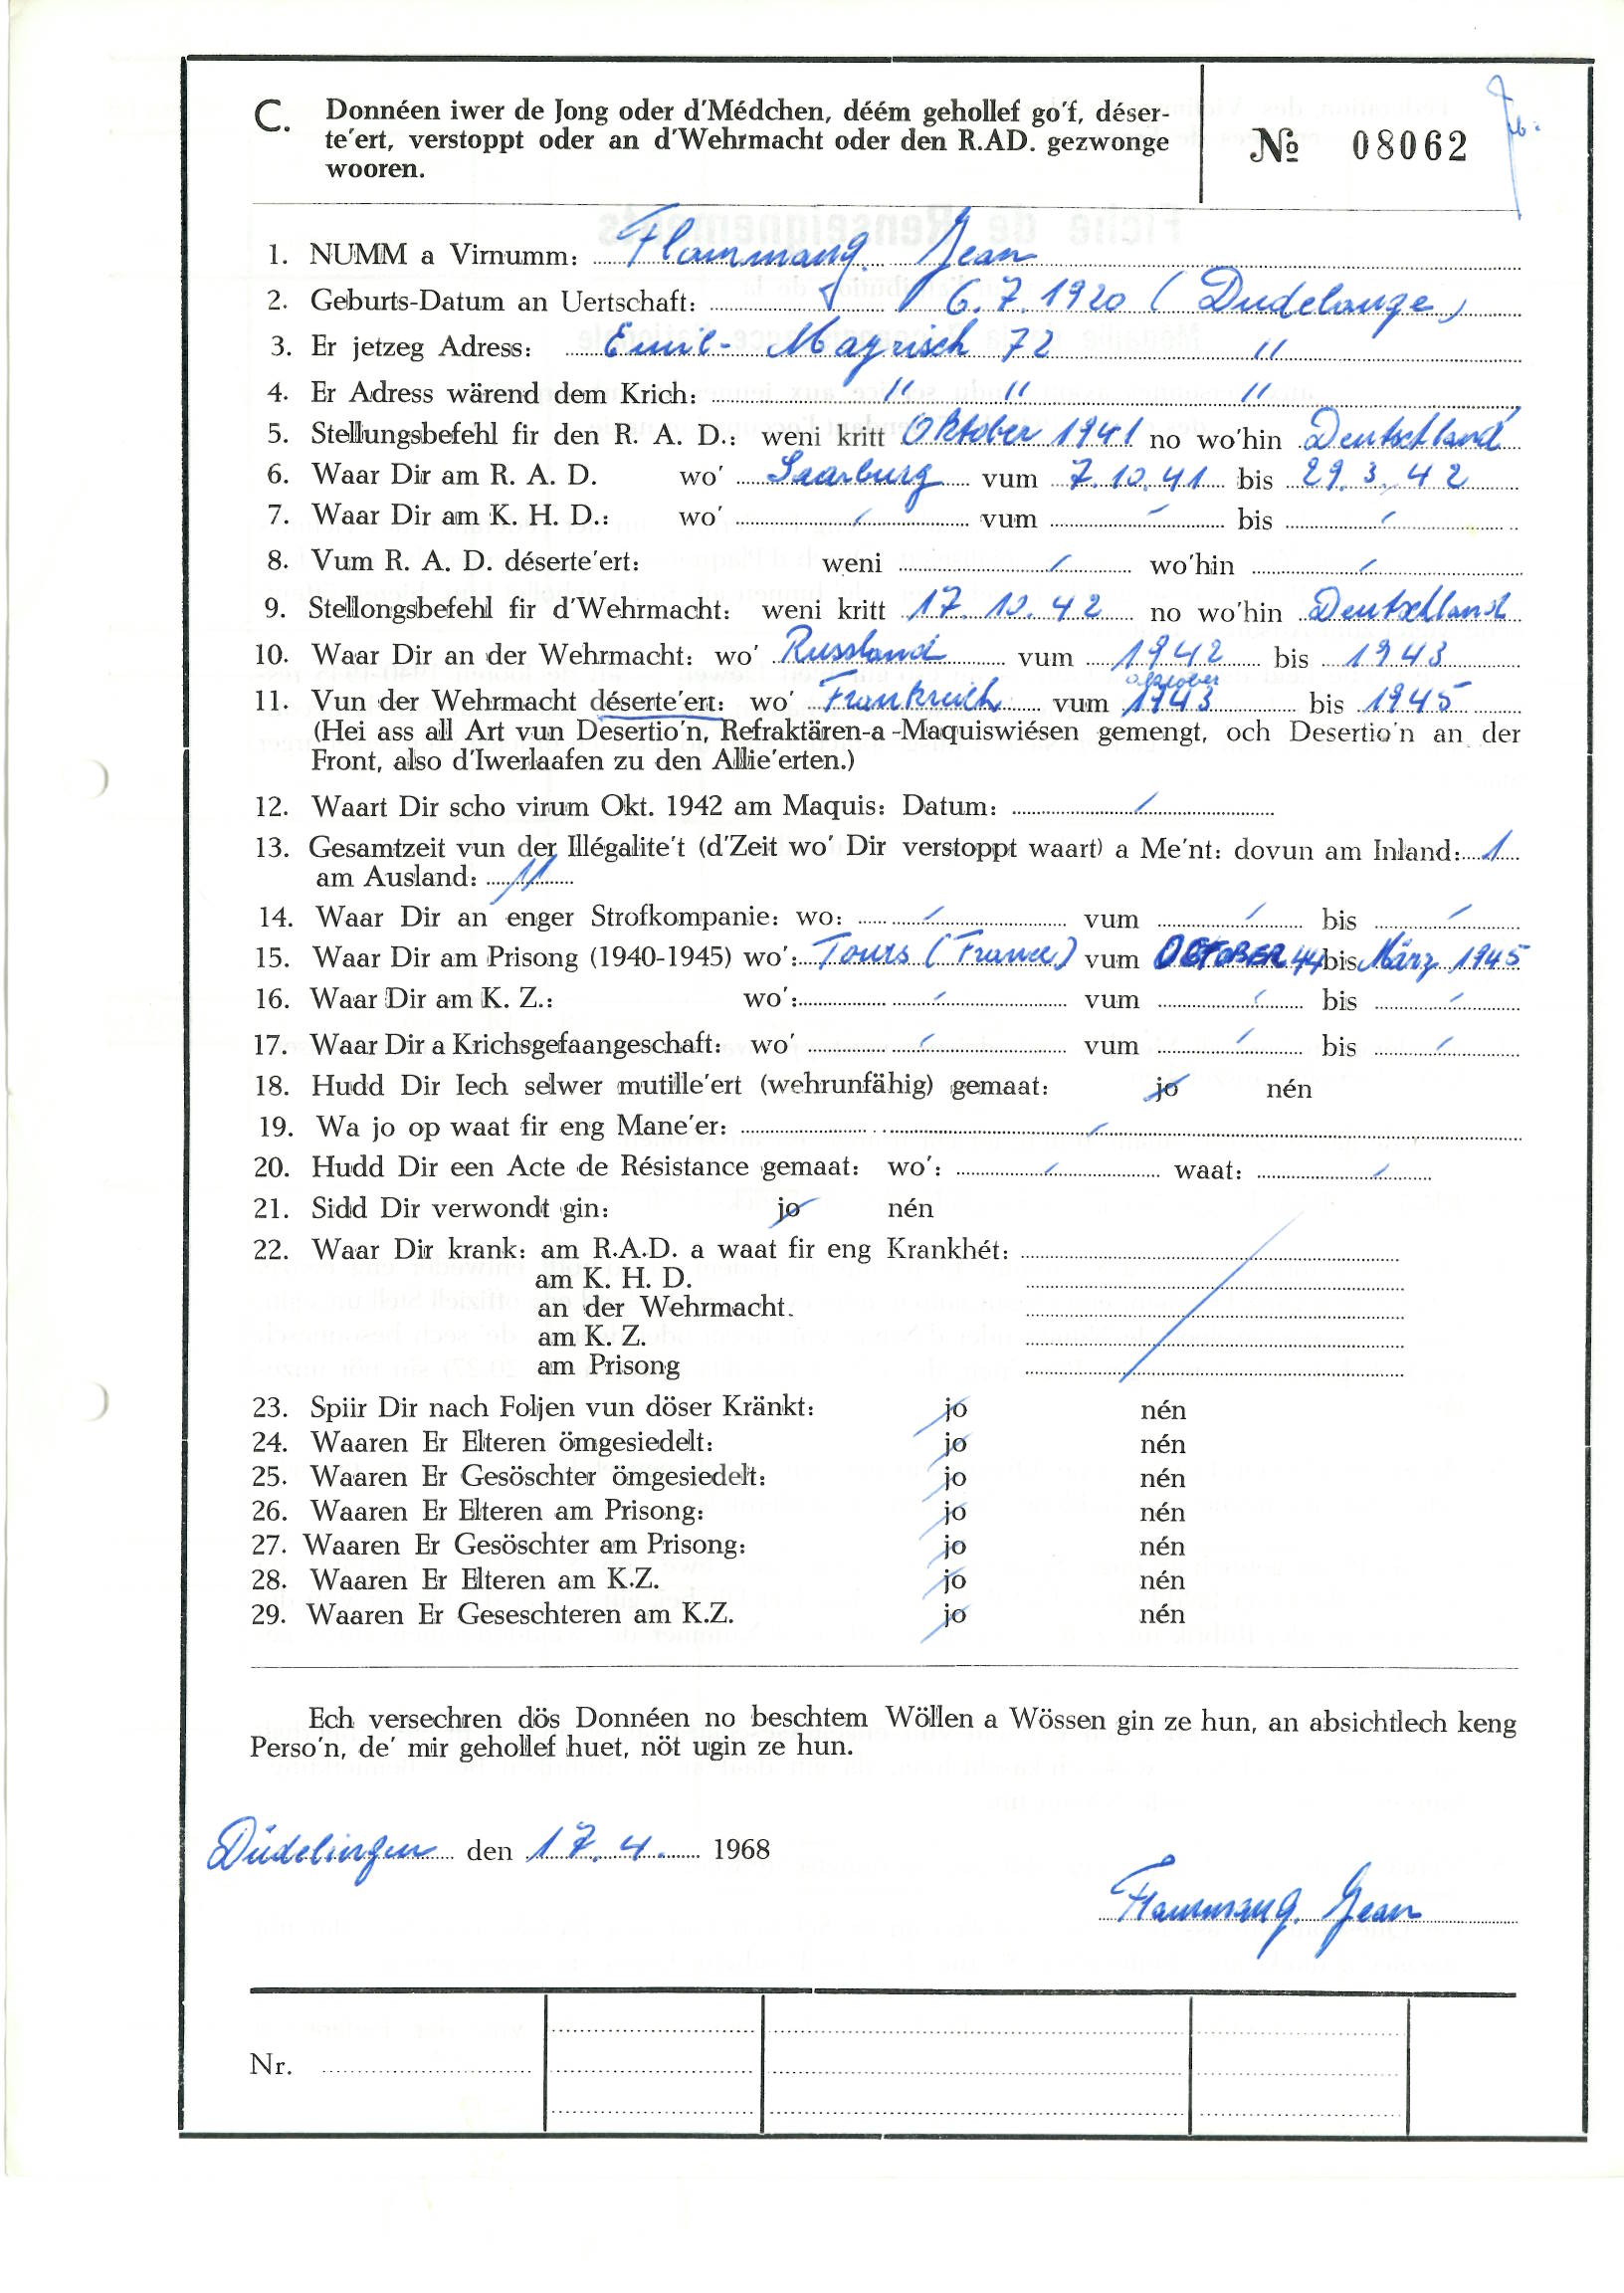 C. Donnéen iwer de Jong oder d'Médchen, déém gehollef go'f, déser-
te'ert, verstoppt oder an d'Wehrmacht oder den R.AD. gezwonge
wooren.
№ 08062
1. NUMM a Virnumm: Flammang. Jean
2. Geburts-Datum an Uertschaft: 6.7.1920 (Dudelange)
3. Er jetzeg Adress: Emil- Mayrisch 72 "
4. Er Adress wärend dem Krich: " " "
5. Stellungsbefehl fir den R. A. D.: weni kritt Oktober 1941 no wo'hin Deutschland
6. Waar Dir am R. A. D. wo' Saarburg vum 7.10.41 bis 29.3.42
7. Waar Dir am K. H. D.: wo' / vum / bis /
8. Vum R. A. D. déserte'ert: weni / wo'hin /
9. Stellongsbefehl fir d'Wehrmacht: weni kritt 17.10.42 no wo'hin Deutschland
10. Waar Dir an der Wehrmacht: wo' Russland vum 1942 bis 1943
11. Vun der Wehrmacht déserte'ert: wo' Frankreich vum oktober 1943 bis 1945
(Hei ass all Art vun Desertio'n, Refraktären-a-Maquiswiésen gemengt, och Desertio'n an der
Front, also d'Iwerlaafen zu den Allie'erten.)
12. Waart Dir scho virum Okt. 1942 am Maquis: Datum: /
13. Gesamtzeit vun der Illégalite't (d'Zeit wo' Dir verstoppt waart) a Me'nt: dovun am Inland: 1
am Ausland: 11
14. Waar Dir an enger Strofkompanie: wo: / vum / bis /
15. Waar Dir am Prisong (1940-1945) wo': Tours (France) vum OCTOBER 44 bis März 1945
16. Waar Dir am K. Z.: wo': / vum / bis /
17. Waar Dir a Krichsgefaangeschaft: wo' / vum / bis /
18. Hudd Dir Iech selwer mutille'ert (wehrunfähig) gemaat: jo nén
19. Wa jo op waat fir eng Mane'er: /
20. Hudd Dir een Acte de Résistance gemaat: wo': / waat: /
21. Sidd Dir verwondt gin: jo nén
22. Waar Dir krank: am R.A.D. a waat fir eng Krankhét:
am K. H. D.
an der Wehrmacht.
am K. Z.
am Prisong
23. Spiir Dir nach Foljen vun döser Kränkt: jo nén
24. Waaren Er Elteren ömgesiedelt: jo nén
25. Waaren Er Gesöschter ömgesiedelt: jo nén
26. Waaren Er Elteren am Prisong: jo nén
27. Waaren Er Gesöschter am Prisong: jo nén
28. Waaren Er Elteren am K.Z. jo nén
29. Waaren Er Geseschteren am K.Z. jo nén
Ech versechren dös Donnéen no beschtem Wöllen a Wössen gin ze hun, an absichtlech keng
Perso'n, de' mir gehollef huet, nöt ugin ze hun.
Düdelingen den 17.4. 1968
Flammang. Jean
Nr.